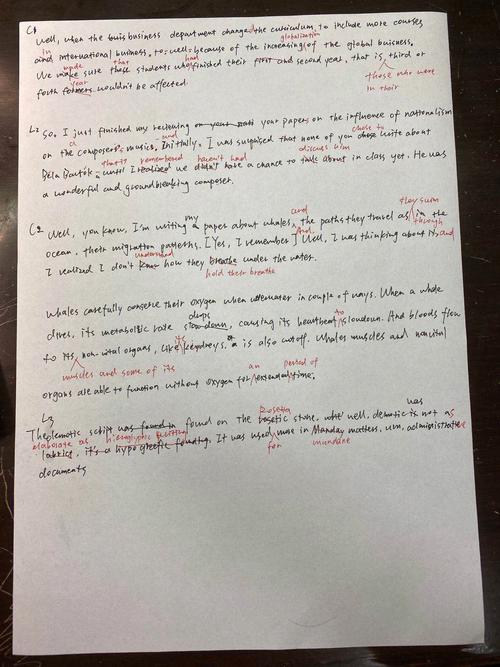 C1
Well, when the business department changed the curriculum, to include more courses
in globalization
and international business, to well because of the increasing of the global business.
made that had
We make sure those students who finished their first and second year, that is third or
year those who were
forth formers wouldn't be affected. in their
L2 So. I just finished my reviewing on your papers on the influence of nationalism
a and chose to
on the composers' musics. Initially, I was surprised that none of you chose write about
that's remembered haven't had discuss him
Béla Bartók until I realized we didn't have a chance to talk about in class yet. He was
a wonderful and groundbreaking composer.
my and they swim
C2 Well, you know, I'm writing a paper about whales, the paths they travel as in the
And, through
ocean, their migration patterns. [Yes, I remember] Well, I was thinking about it, and
understand
I realized I don't know how they breathe under the water.
hold their breathe
Whales carefully conserve their oxygen when underwater in couple of ways. When a whale
drops to
dives, its metabolic rate slowdown, causing its heartbeat slowdown. And bloods flow
its
to its non-vital organs, like keydneys. is also cutoff. Whales muscles and nonvital
muscles and some of its an period of
organs are able to function without oxygen for extended time.
L3
Rosetta was
found in found on The rosetic stone, well, demotic is not as
elaborate as hieroglyphic writing
It was used more in Manday matters, um, administrative
for mundane
documents